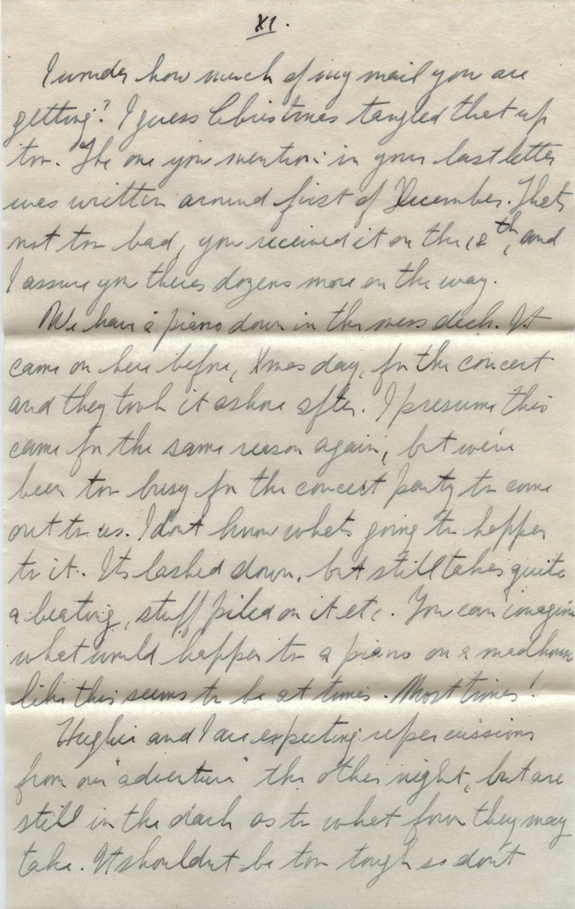 XI.
I wonder how much of my mail you are
getting? I guess Christmas tangled that up
too. The one you mention in your last letter
was written around first of December. Thats
not too bad, you received it on the 18th, and
I assure you theres dozens more on the way.
We have a piano down in the mess deck. It
came on here before, Xmas day, for the concert
and they took it ashore after. I presume this
came for the same reason again, but we've
been too busy for the concert party to come
out to us. I don't know whats going to happen
to it. Its lashed down, but still takes quite
a beating, stuff piled on it etc. You can imagine
what would happen to a piano on a madhouse
like this seems to be at times. Most times!
Hughie and I are expecting repercussions
from our "adventure" the other night, but are
still in the dark as to what form they may
take. It shouldn't be too tough so don't